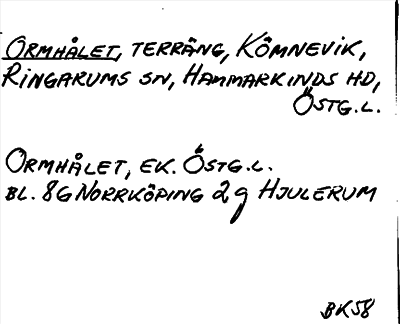 ORMHÅLET, TERRÄNG, KÖMNEVIK,
RINGARUMS SN, HAMMARKINDS HD,
ÖSTG.L.
ORMHÅLET, EK. ÖSTG.L.
BL. 8G NORRKÖPING 2g HJULERUM
BK58